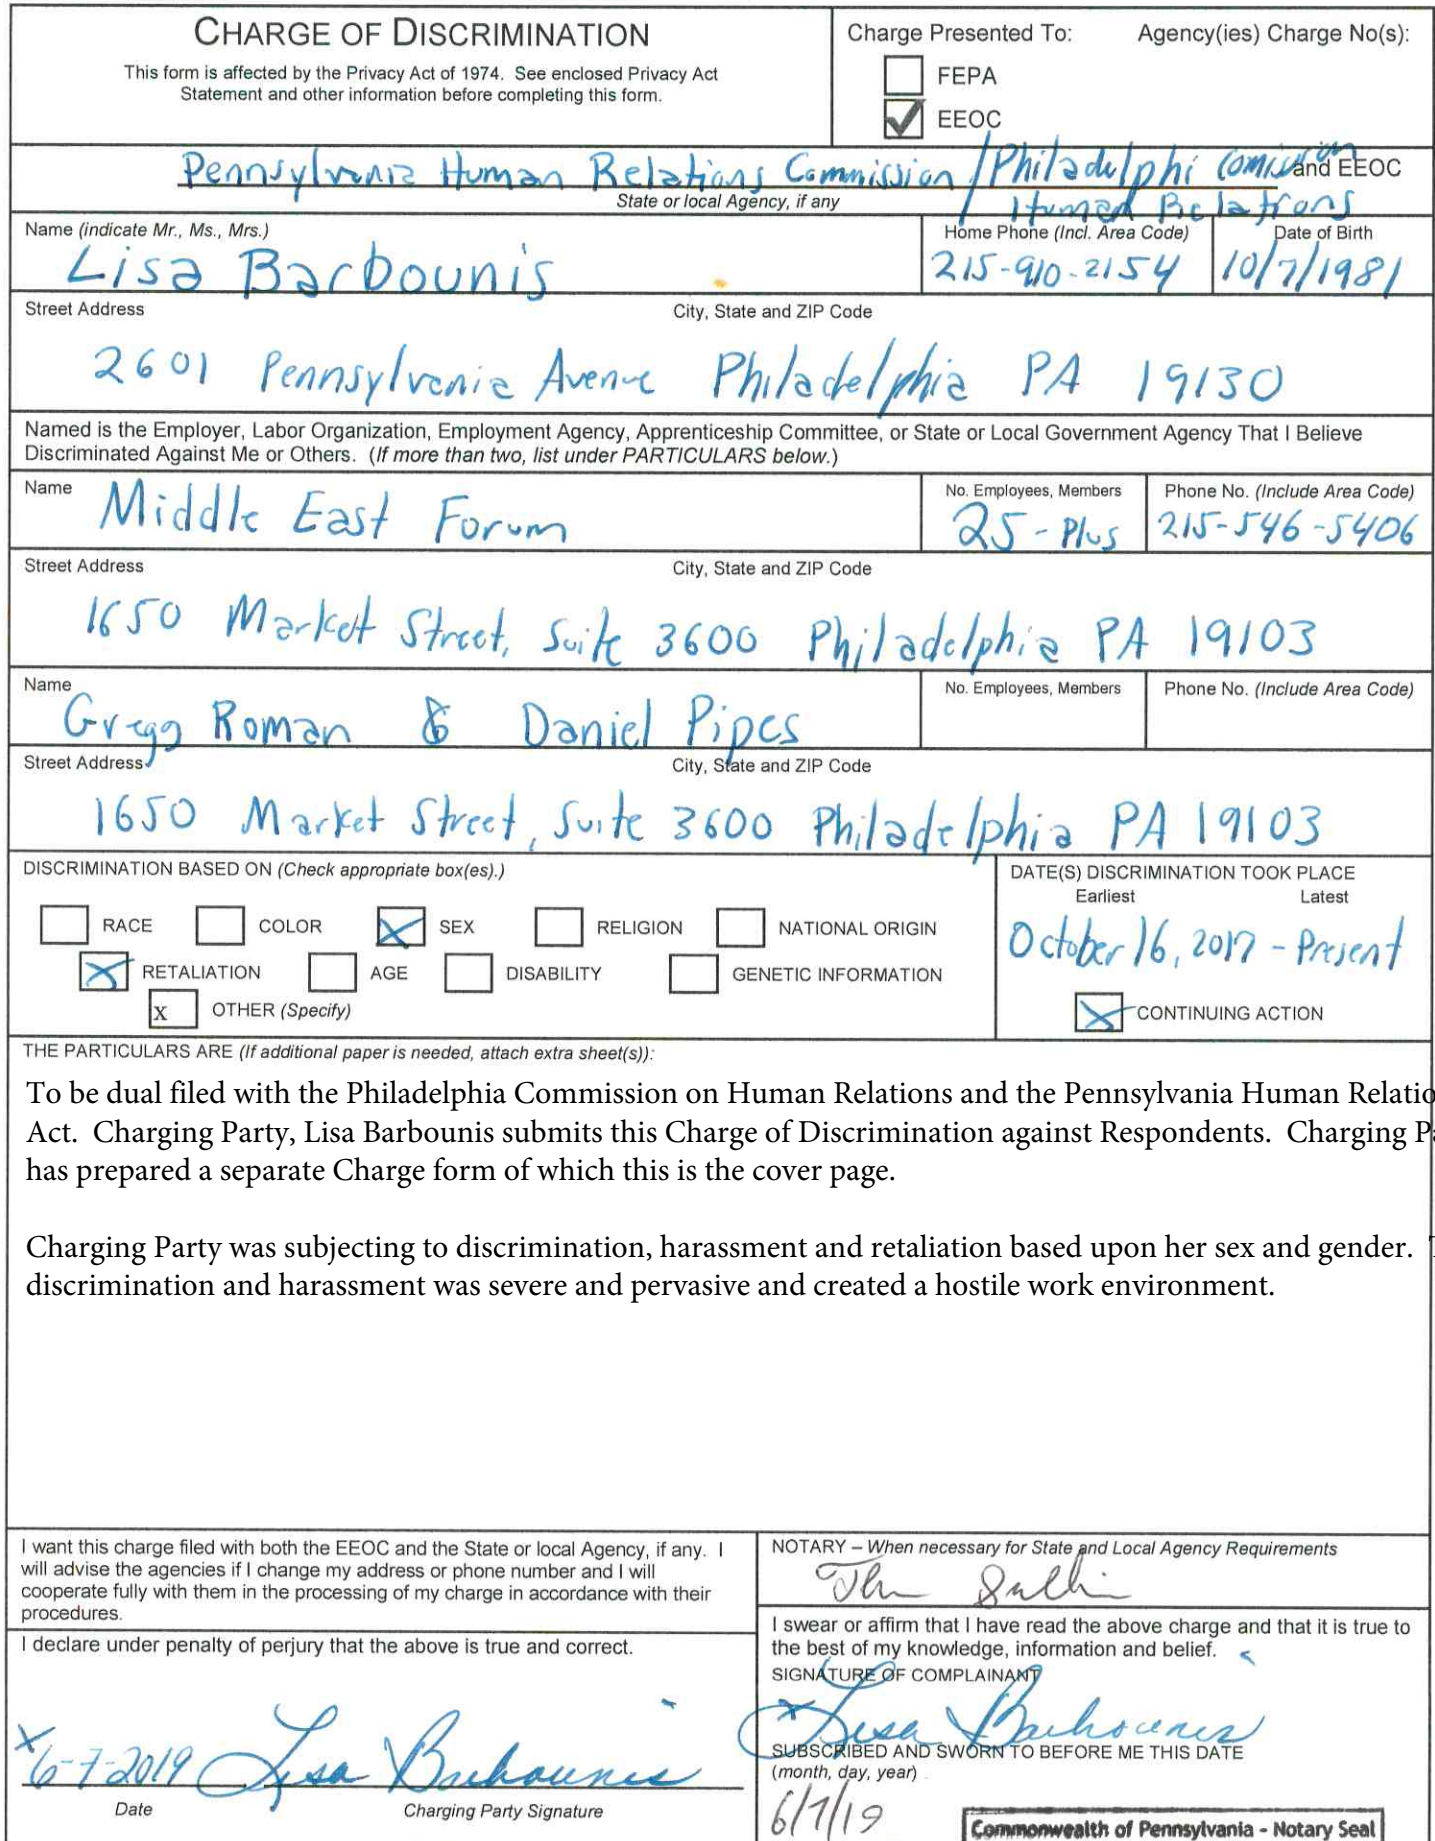 CHARGE OF DISCRIMINATION
This form is affected by the Privacy Act of 1974. See enclosed Privacy Act
Statement and other information before completing this form.
Charge Presented To: Agency(ies) Charge No(s):
FEPA
EEOC
Pennsylvania Human Relations Commission / Philadelphi Comission and EEOC
State or local Agency, if any
Human Relations
Name (indicate Mr., Ms., Mrs.) Home Phone (Incl. Area Code) Date of Birth
Lisa Barbounis 215-910-2154 10/7/1981
Street Address City, State and ZIP Code
2601 Pennsylvania Avenue Philadelphia PA 19130
Named is the Employer, Labor Organization, Employment Agency, Apprenticeship Committee, or State or Local Government Agency That I Believe
Discriminated Against Me or Others. (If more than two, list under PARTICULARS below.)
Name No. Employees, Members Phone No. (Include Area Code)
Middle East Forum 25-Plus 215-546-5406
Street Address City, State and ZIP Code
1650 Market Street, Suite 3600 Philadelphia PA 19103
Name No. Employees, Members Phone No. (Include Area Code)
Gregg Roman & Daniel Pipes
Street Address City, State and ZIP Code
1650 Market Street, Suite 3600 Philadelphia PA 19103
DISCRIMINATION BASED ON (Check appropriate box(es).) DATE(S) DISCRIMINATION TOOK PLACE
Earliest Latest
RACE COLOR SEX RELIGION NATIONAL ORIGIN
October 16, 2017 - Present
RETALIATION AGE DISABILITY GENETIC INFORMATION
x OTHER (Specify) CONTINUING ACTION
THE PARTICULARS ARE (If additional paper is needed, attach extra sheet(s)):
To be dual filed with the Philadelphia Commission on Human Relations and the Pennsylvania Human Relatio
Act. Charging Party, Lisa Barbounis submits this Charge of Discrimination against Respondents. Charging Pa
has prepared a separate Charge form of which this is the cover page.
Charging Party was subjecting to discrimination, harassment and retaliation based upon her sex and gender. T
discrimination and harassment was severe and pervasive and created a hostile work environment.
I want this charge filed with both the EEOC and the State or local Agency, if any. I
will advise the agencies if I change my address or phone number and I will
cooperate fully with them in the processing of my charge in accordance with their
procedures.
I declare under penalty of perjury that the above is true and correct.
x 6-7-2019 Lisa Barbounis
Date Charging Party Signature
NOTARY – When necessary for State and Local Agency Requirements
I swear or affirm that I have read the above charge and that it is true to
the best of my knowledge, information and belief.
SIGNATURE OF COMPLAINANT
x Lisa Barbounis
SUBSCRIBED AND SWORN TO BEFORE ME THIS DATE
(month, day, year)
6/7/19
Commonwealth of Pennsylvania - Notary Seal